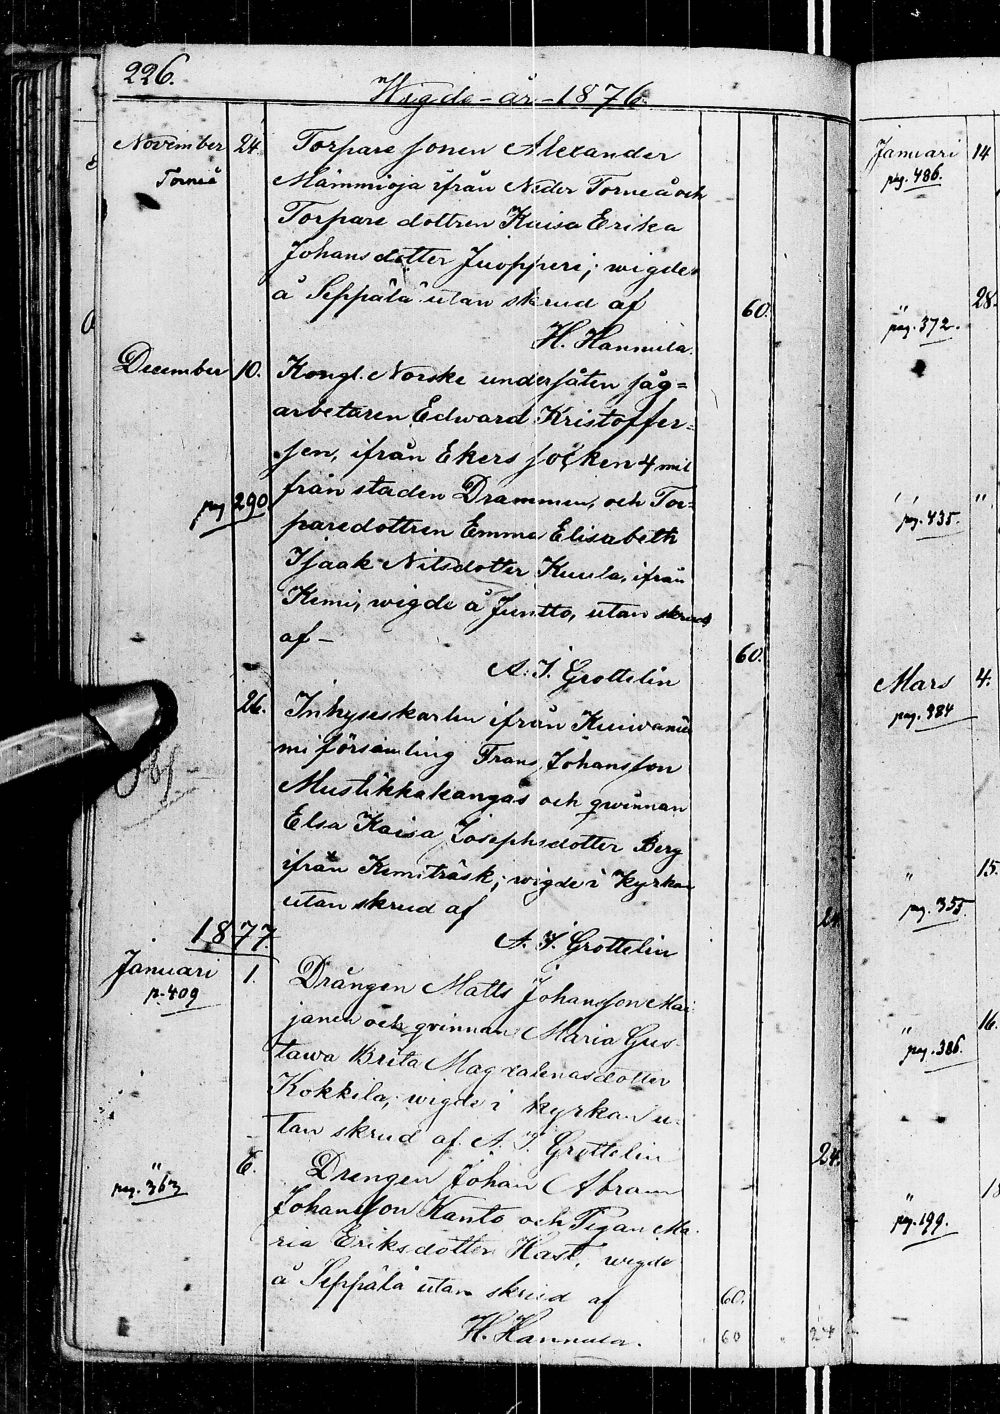 226.
Wigde-år-1876.
November 24. Torpare sonen Alexander
Torneå Mämmioja ifrån Neder Torneå och
Torpare dottren Kaisa Erika
Johansdotter Juopperi; wigde
å Seppälä utan skrud af 60.
H. Hannula.
December 10. Kongl. Norske undersåten såg=
arbetaren Edward Kristoffer=
sen, ifrån Ekers socken 4 mil
pag 290 från staden Drammen, och Tor-
paredottren Emma Elisabeth
Isaak Nilsdotter Kuula, ifrån
Kemi, wigde å Juntto, utan skrud
af - 60.
A. I. Grottelin
26. Inhyseskarlen ifrån Kuivanie
mi församling Frans Johansson
Mustikkakangas och qwinnan
Elsa Kaisa Josephsdotter Berg
ifrån Kemiträsk; wigde i kyrkan
utan skrud af 24
A. I. Grottelin
1877.
Januari 1. Drängen Matts Johansson Mai
p. 409 janen och qvinnan Maria Gus-
tawa Brita Magdalenasdotter
Kokkila, wigde i kyrkan u-
tan skrud af A. I. Grottelin 24.
" 6. Drengen Johan Abram
pag. 363 Johansson Kanto och Pigan Ma-
ria Eriksdotter Hast, wigde
å Seppälä utan skrud af 60.
H. Hannula. 60 24
Januari 14
pag. 486.
" 28.
pag. 372.
" "
pag. 435.
Mars 4.
pag. 384
" 15.
pag. 355.
" 16.
pag. 386.
"
pag. 199.